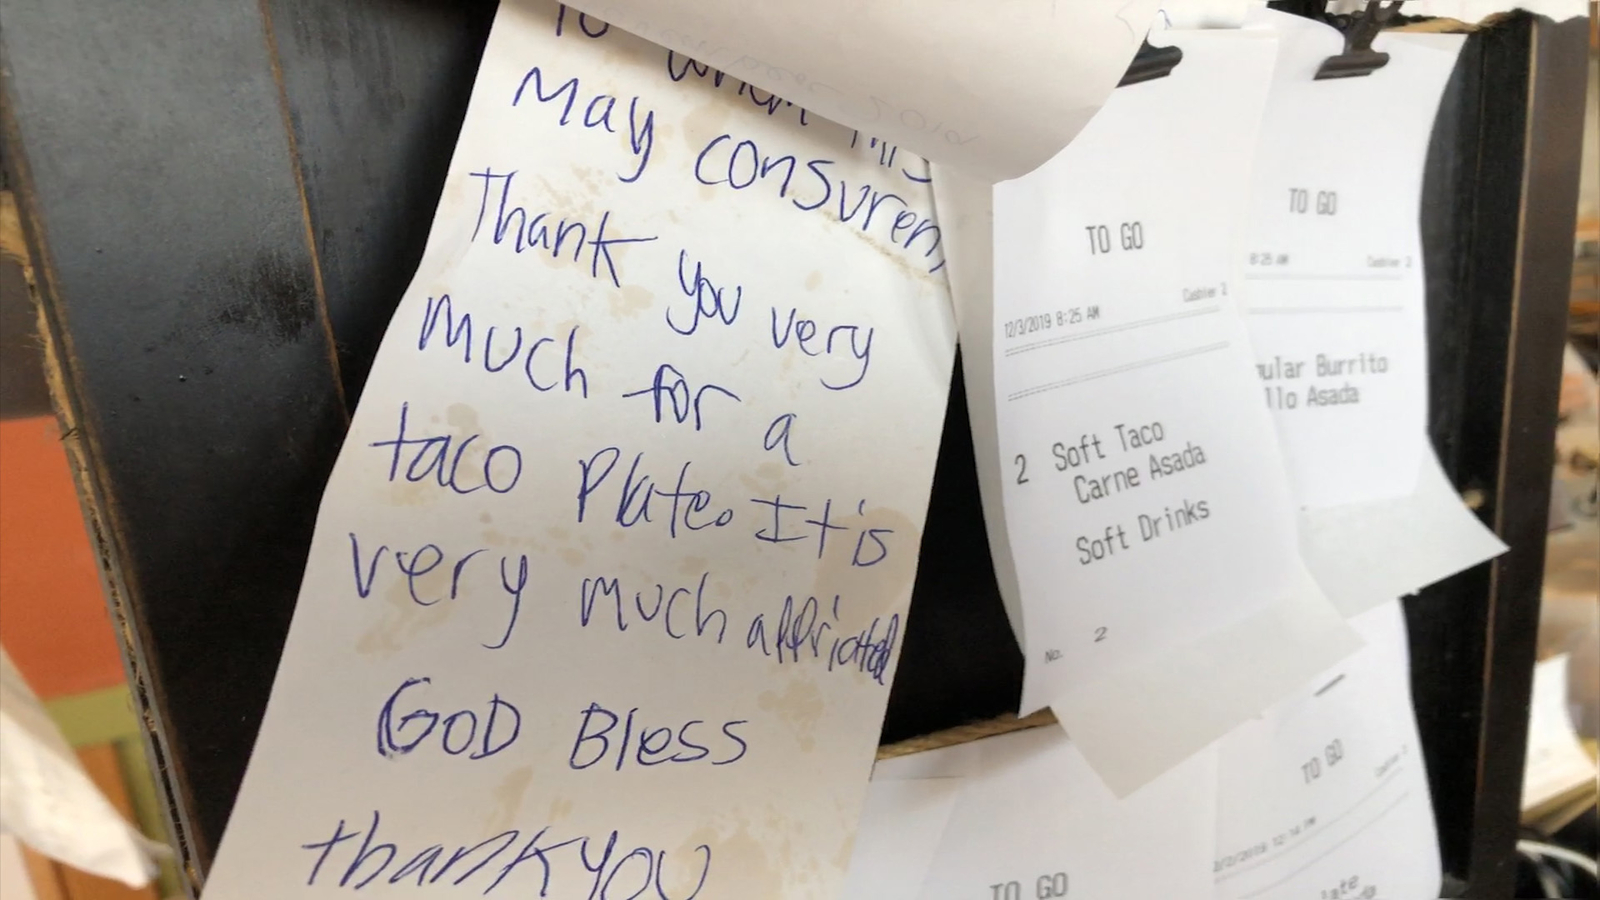 To whom this
May consuren,
Thank you very
much for a
taco Plate. It is
very much appriciated
GOD Bless
thank you
TO GO
12/3/2019 8:25 AM Cashier 2
2 Soft Taco
Carne Asada
Soft Drinks
No. 2
TO GO
8:25 AM Cashier 2
ular Burrito
llo Asada
TO GO
TO GO
late